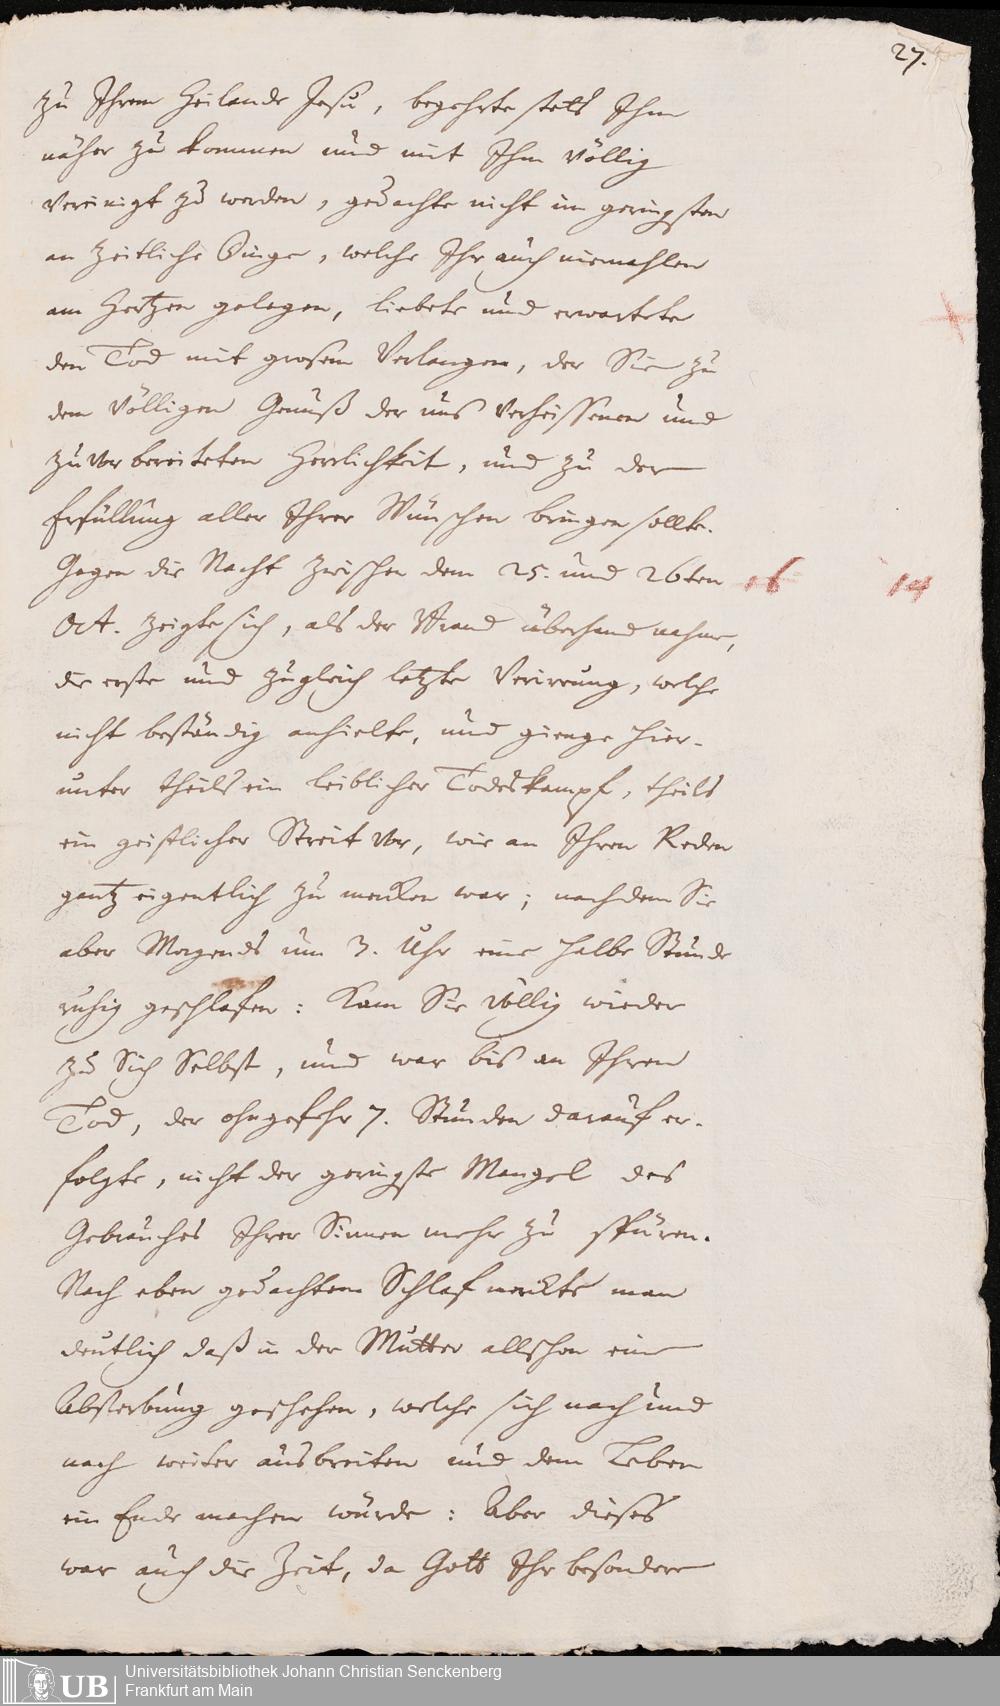 27.
zu Ihrem Heilande Jesu, begehrte stets Ihm
näher zu kommen und mit Ihm völlig
vereinigt zu werden, gedachte nicht im geringsten
an zeitliche Dinge, welche Ihr auch niemahlen
am Hertzen gelegen, liebete und erwartete
den Tod mit grosem Verlangen, der Sie zu
dem völligen Genuß der uns verheissenen und
zuvor bereiteten Herrlichkeit, und zu der
Erfüllung aller Ihrer Wünschen bringen sollte.
Gegen die Nacht zwischen dem 25. und 26ten 16 14
Oct. zeigte sich, als der Brand überhand nahm,
die erste und zugleich letzte Verirrung, welche
nicht beständig anhielte, und gienge hier-
unter theils ein leiblicher Todeskampf, theils
ein geistlicher Streit vor, wie an Ihren Reden
gantz eigentlich zu mercken war; nachdem Sie
aber Morgends um 3. Uhr eine halbe Stunde
ruhig geschlafen: kam Sie völlig wieder
zu Sich Selbst, und war bis an Ihren
Tod, der ohngefehr 7. Stunden darauf er-
folgte, nicht der geringste Mangel des
Gebrauches Ihrer Sinnen mehr zu spüren.
Nach eben gedachtem Schlaf merckte man
deutlich daß in der Mutter allschon eine
Absterbung geschehen, welche sich nach und
nach weiter ausbreiten und dem Leben
ein Ende machen würde: Aber dieses
war auch die Zeit, da Gott Ihr besondere
UB Universitätsbibliothek Johann Christian Senckenberg
Frankfurt am Main